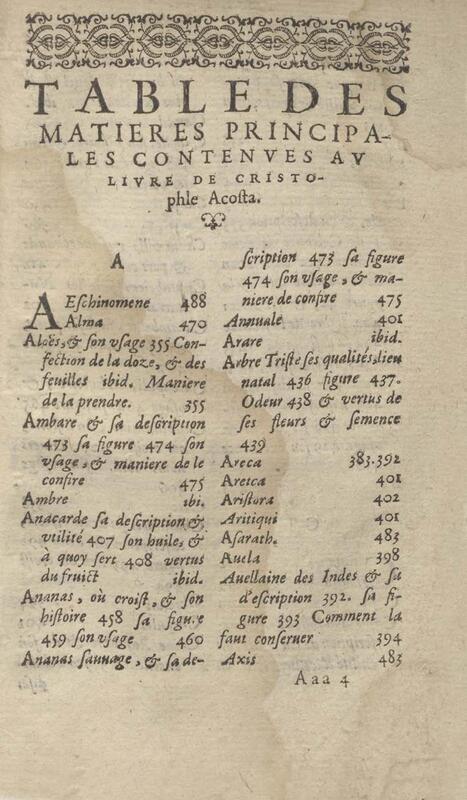 TABLE DES
MATIERES PRINCIPA-
LES CONTENVES AV
LIVRE DE CRISTO-
phle Acoſta.
A
AEſchinomene 488
Alma 470
Aloës, & ſon vſage 355 Con-
fection de la doze, & des
feuilles ibid. Maniere
de la prendre. 355
Ambare & ſa deſcription
473 ſa figure 474 ſon
vſage, & maniere de le
confire 475
Ambre ibi.
Anacarde ſa deſcription &
vtilité 407 ſon huile, &
à quoy ſert 408 vertus
du fruict ibid.
Ananas, où croiſt, & ſon
hiſtoire 458 ſa figure
459 ſon vſage 460
Ananas ſauuage, & ſa de-
ſcription 473 ſa figure
474 ſon vſage, & ma-
niere de confire 475
Annuale 401
Arare ibid.
Arbre Triſte ſes qualités, lieu
natal 436 figure 437.
Odeur 438 & vertus de
ſes fleurs & ſemence
439
Areca 383.392
Aretca 401
Ariſtora 402
Aritiqui 401
Aſarath. 483
Auela 398
Auellaine des Indes & ſa
d'eſcription 392. ſa fi-
gure 393 Comment la
faut conſeruer 394
Axis 483
Aaa 4